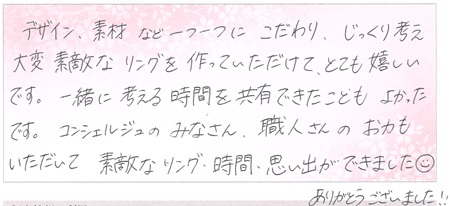 デザイン、素材 など一つ一つに こだわり、じっくり考え
大変 素敵な リングを 作っていただけて、とても嬉しい
です。一緒に 考える 時間を 共有できたことも よかった
です。コンシェルジュの みなさん、職人さんの お力も
いただいて 素敵な リング・時間・思い出ができました☺
ありがとうございました!!